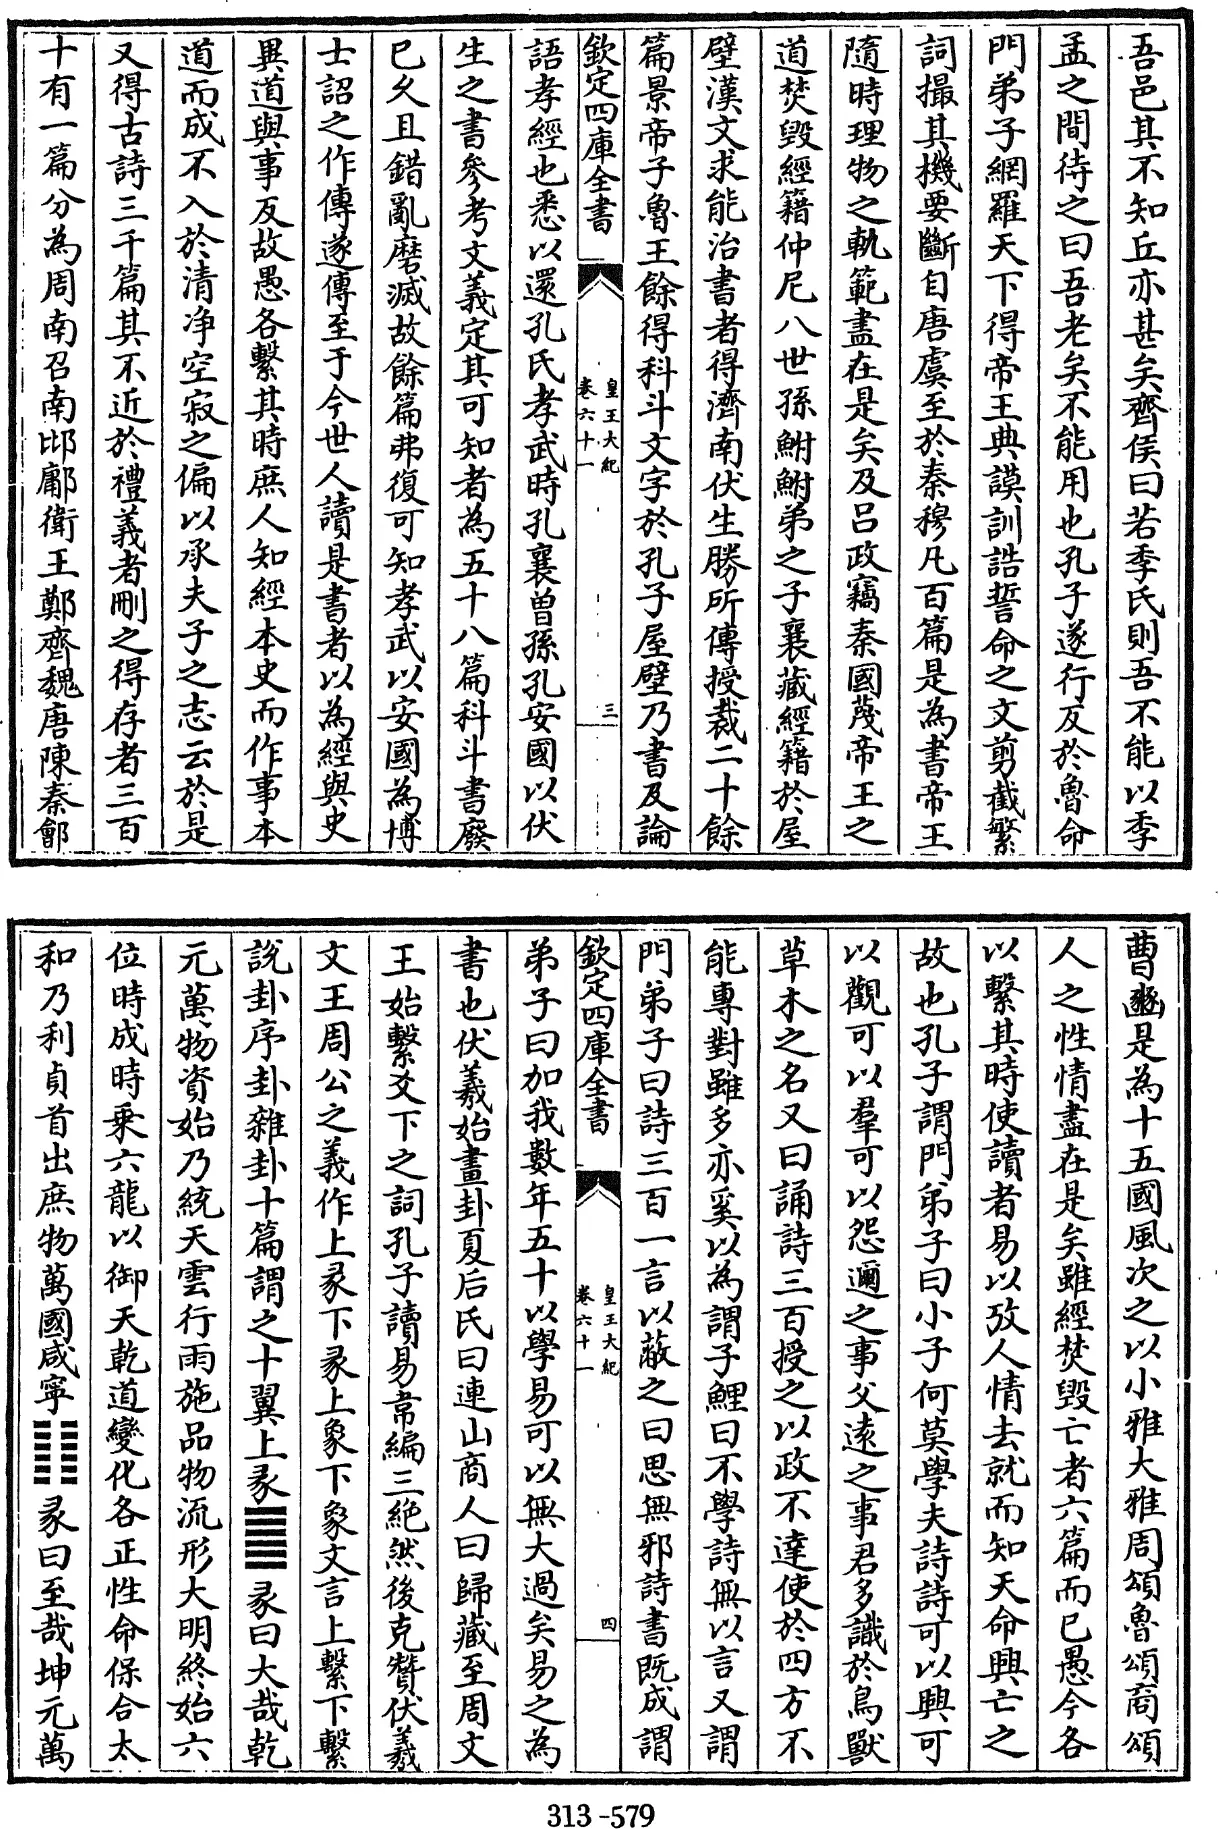 吾邑其不知丘亦甚矣齊侯曰若季氏則吾不能以季
孟之間待之曰吾老矣不能用也孔子遂行反於魯命
門弟子網羅天下得帝王典謨訓誥誓命之文剪截繁
詞撮其機要斷自唐虞至於秦穆凡百篇是為書帝王
隨時理物之軌範盡在是矣及吕政竊秦國蔑帝王之
道焚毀經籍仲尼八世孫鮒鮒弟之子襄藏經籍於屋
壁漢文求能治書者得濟南伏生勝所傳授裁二十餘
篇景帝子魯王餘得科斗文字於孔子屋壁乃書及論
欽定四庫全書
皇王大紀
卷六十一
三
語孝經也悉以還孔氏孝武時孔襄曽孫孔安國以伏
生之書參考文義定其可知者為五十八篇科斗書廢
已久且錯亂磨滅故餘篇弗復可知孝武以安國為博
士詔之作傳遂傳至于今世人讀是書者以為經與史
異道與事反故愚各繫其時庶人知經本史而作事本
道而成不入於清净空寂之偏以承夫子之志云於是
又得古詩三千篇其不近於禮義者刪之得存者三百
十有一篇分為周南召南邶鄘衛王鄭齊魏唐陳秦鄶
曹豳是為十五國風次之以小雅大雅周頌魯頌商頌
人之性情盡在是矣雖經焚毀亡者六篇而已愚今各
以繫其時使讀者易以攷人情去就而知天命興亡之
故也孔子謂門弟子曰小子何莫學夫詩詩可以興可
以觀可以羣可以怨邇之事父逺之事君多識於鳥獸
草木之名又曰誦詩三百授之以政不達使於四方不
能專對雖多亦奚以為謂子鯉曰不學詩無以言又謂
門弟子曰詩三百一言以蔽之曰思無邪詩書既成謂
欽定四庫全書
皇王大紀
卷六十一
四
弟子曰加我數年五十以學易可以無大過矣易之為
書也伏羲始畫卦夏后氏曰連山商人曰歸藏至周文
王始繫爻下之詞孔子讀易韋編三絶然後克贊伏羲
文王周公之義作上彖下彖上象下象文言上繫下繫
說卦序卦雜卦十篇謂之十翼上彖䷀彖曰大哉乾
元萬物資始乃統天雲行雨施品物流形大明終始六
位時成時乘六龍以御天乾道變化各正性命保合太
和乃利貞首出庶物萬國咸寧䷁彖曰至哉坤元萬
313-579